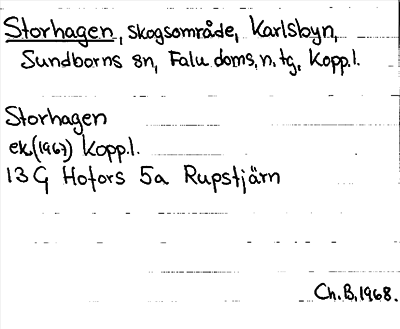 Storhagen, skogsområde, Karlsbyn,
Sundborns sn, Falu doms. n. tg, Kopp.l.
Storhagen
ek.(1967) Kopp.l.
13 G Hofors 5a Rupstjärn
Ch.B. 1968.